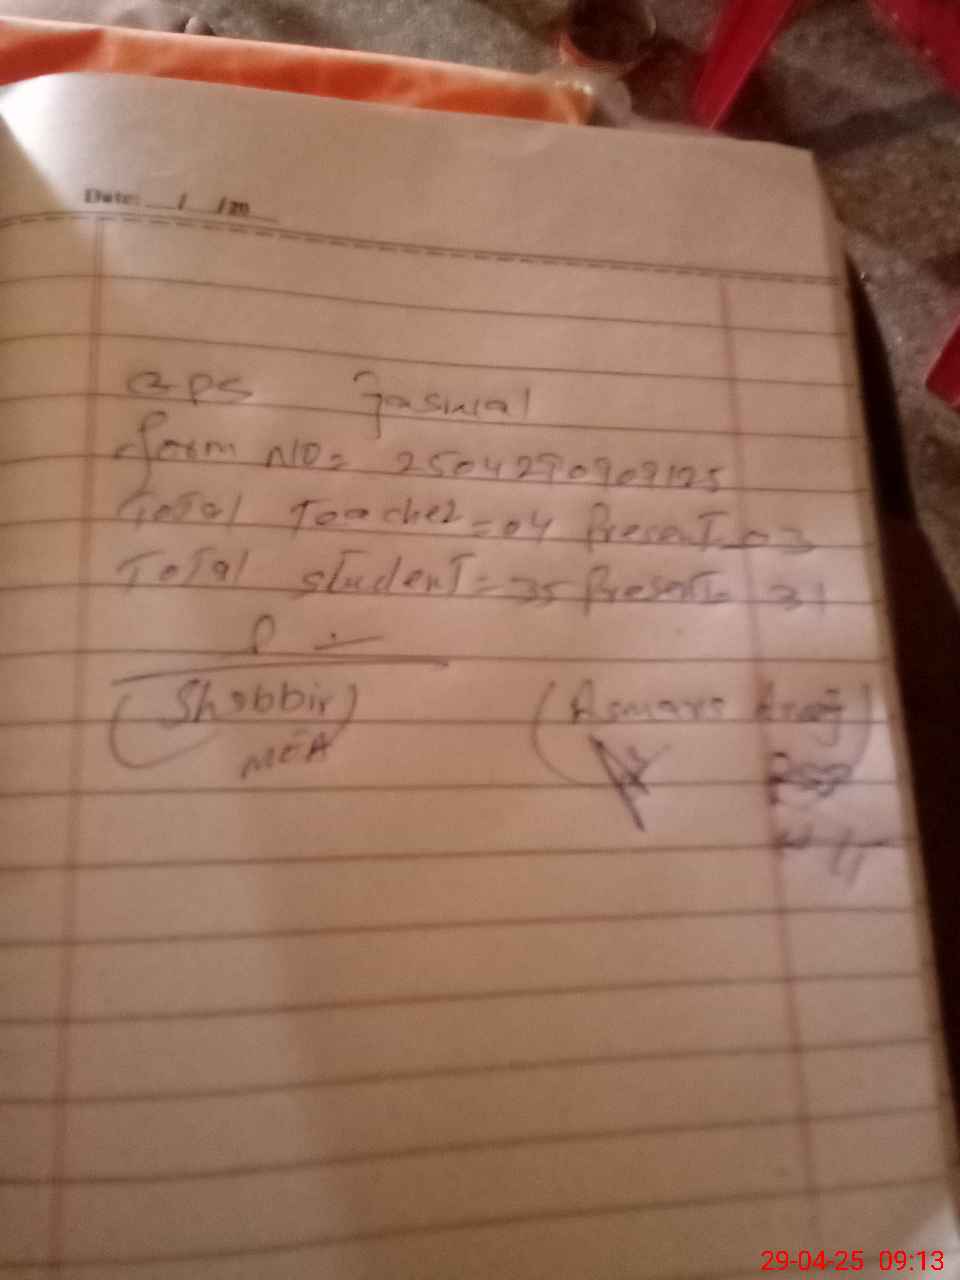 Date: / /20
GPS Jaswal
form NO= 2504290909125
Total Teacher = 04 Present = 3
Total student = 35 Present = 31
(Shabbir)
MEA
29-04-25 09:13